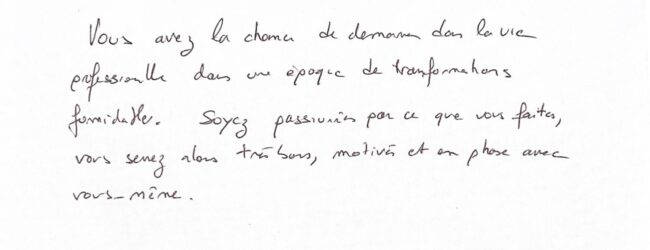 Vous avez la chance de démarrer dans la vie
professionnelle dans une époque de transformations
formidables. Soyez passionnés par ce que vous faites,
vous serez alors très bons, motivés et en phase avec
vous-même.